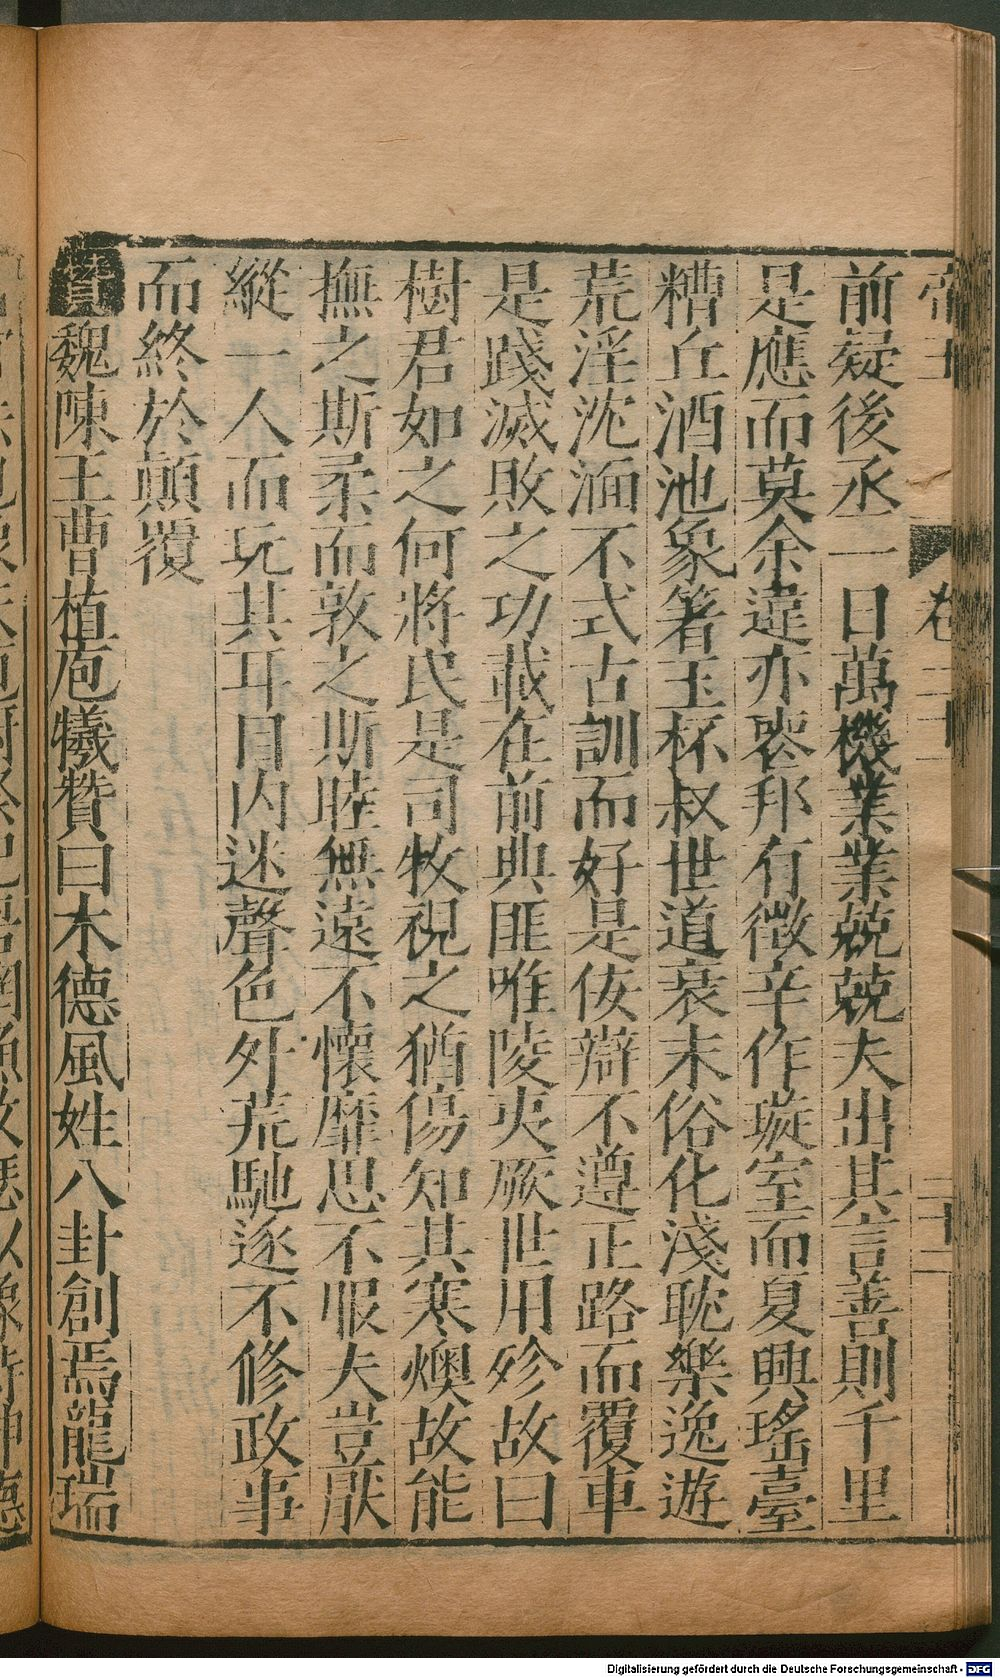 前疑後丞一日萬機業業兢兢夫出其言善則千里
是應而莫余違亦喪邦有徵辛作璇室而夏興瑤臺
糟丘酒池象箸玉杯叔世道衰末俗化淺耽樂逸遊
荒淫沈湎不式古訓而好是佞辯不遵正路而覆車
是踐滅敗之功載在前典匪唯陵夷厥世用殄故曰
樹君如之何將民是司牧視之猶傷知其寒燠故能
撫之斯柔而敦之斯睦無遠不懷靡思不服夫豈厭
縱一人而玩其耳目內迷聲色外荒馳逐不修政事
而終於顛覆
贊魏陳王曹植庖犧贊曰木德風姓八卦創焉龍瑞
Digitalisierung gefördert durch die Deutsche Forschungsgemeinschaft - DFG